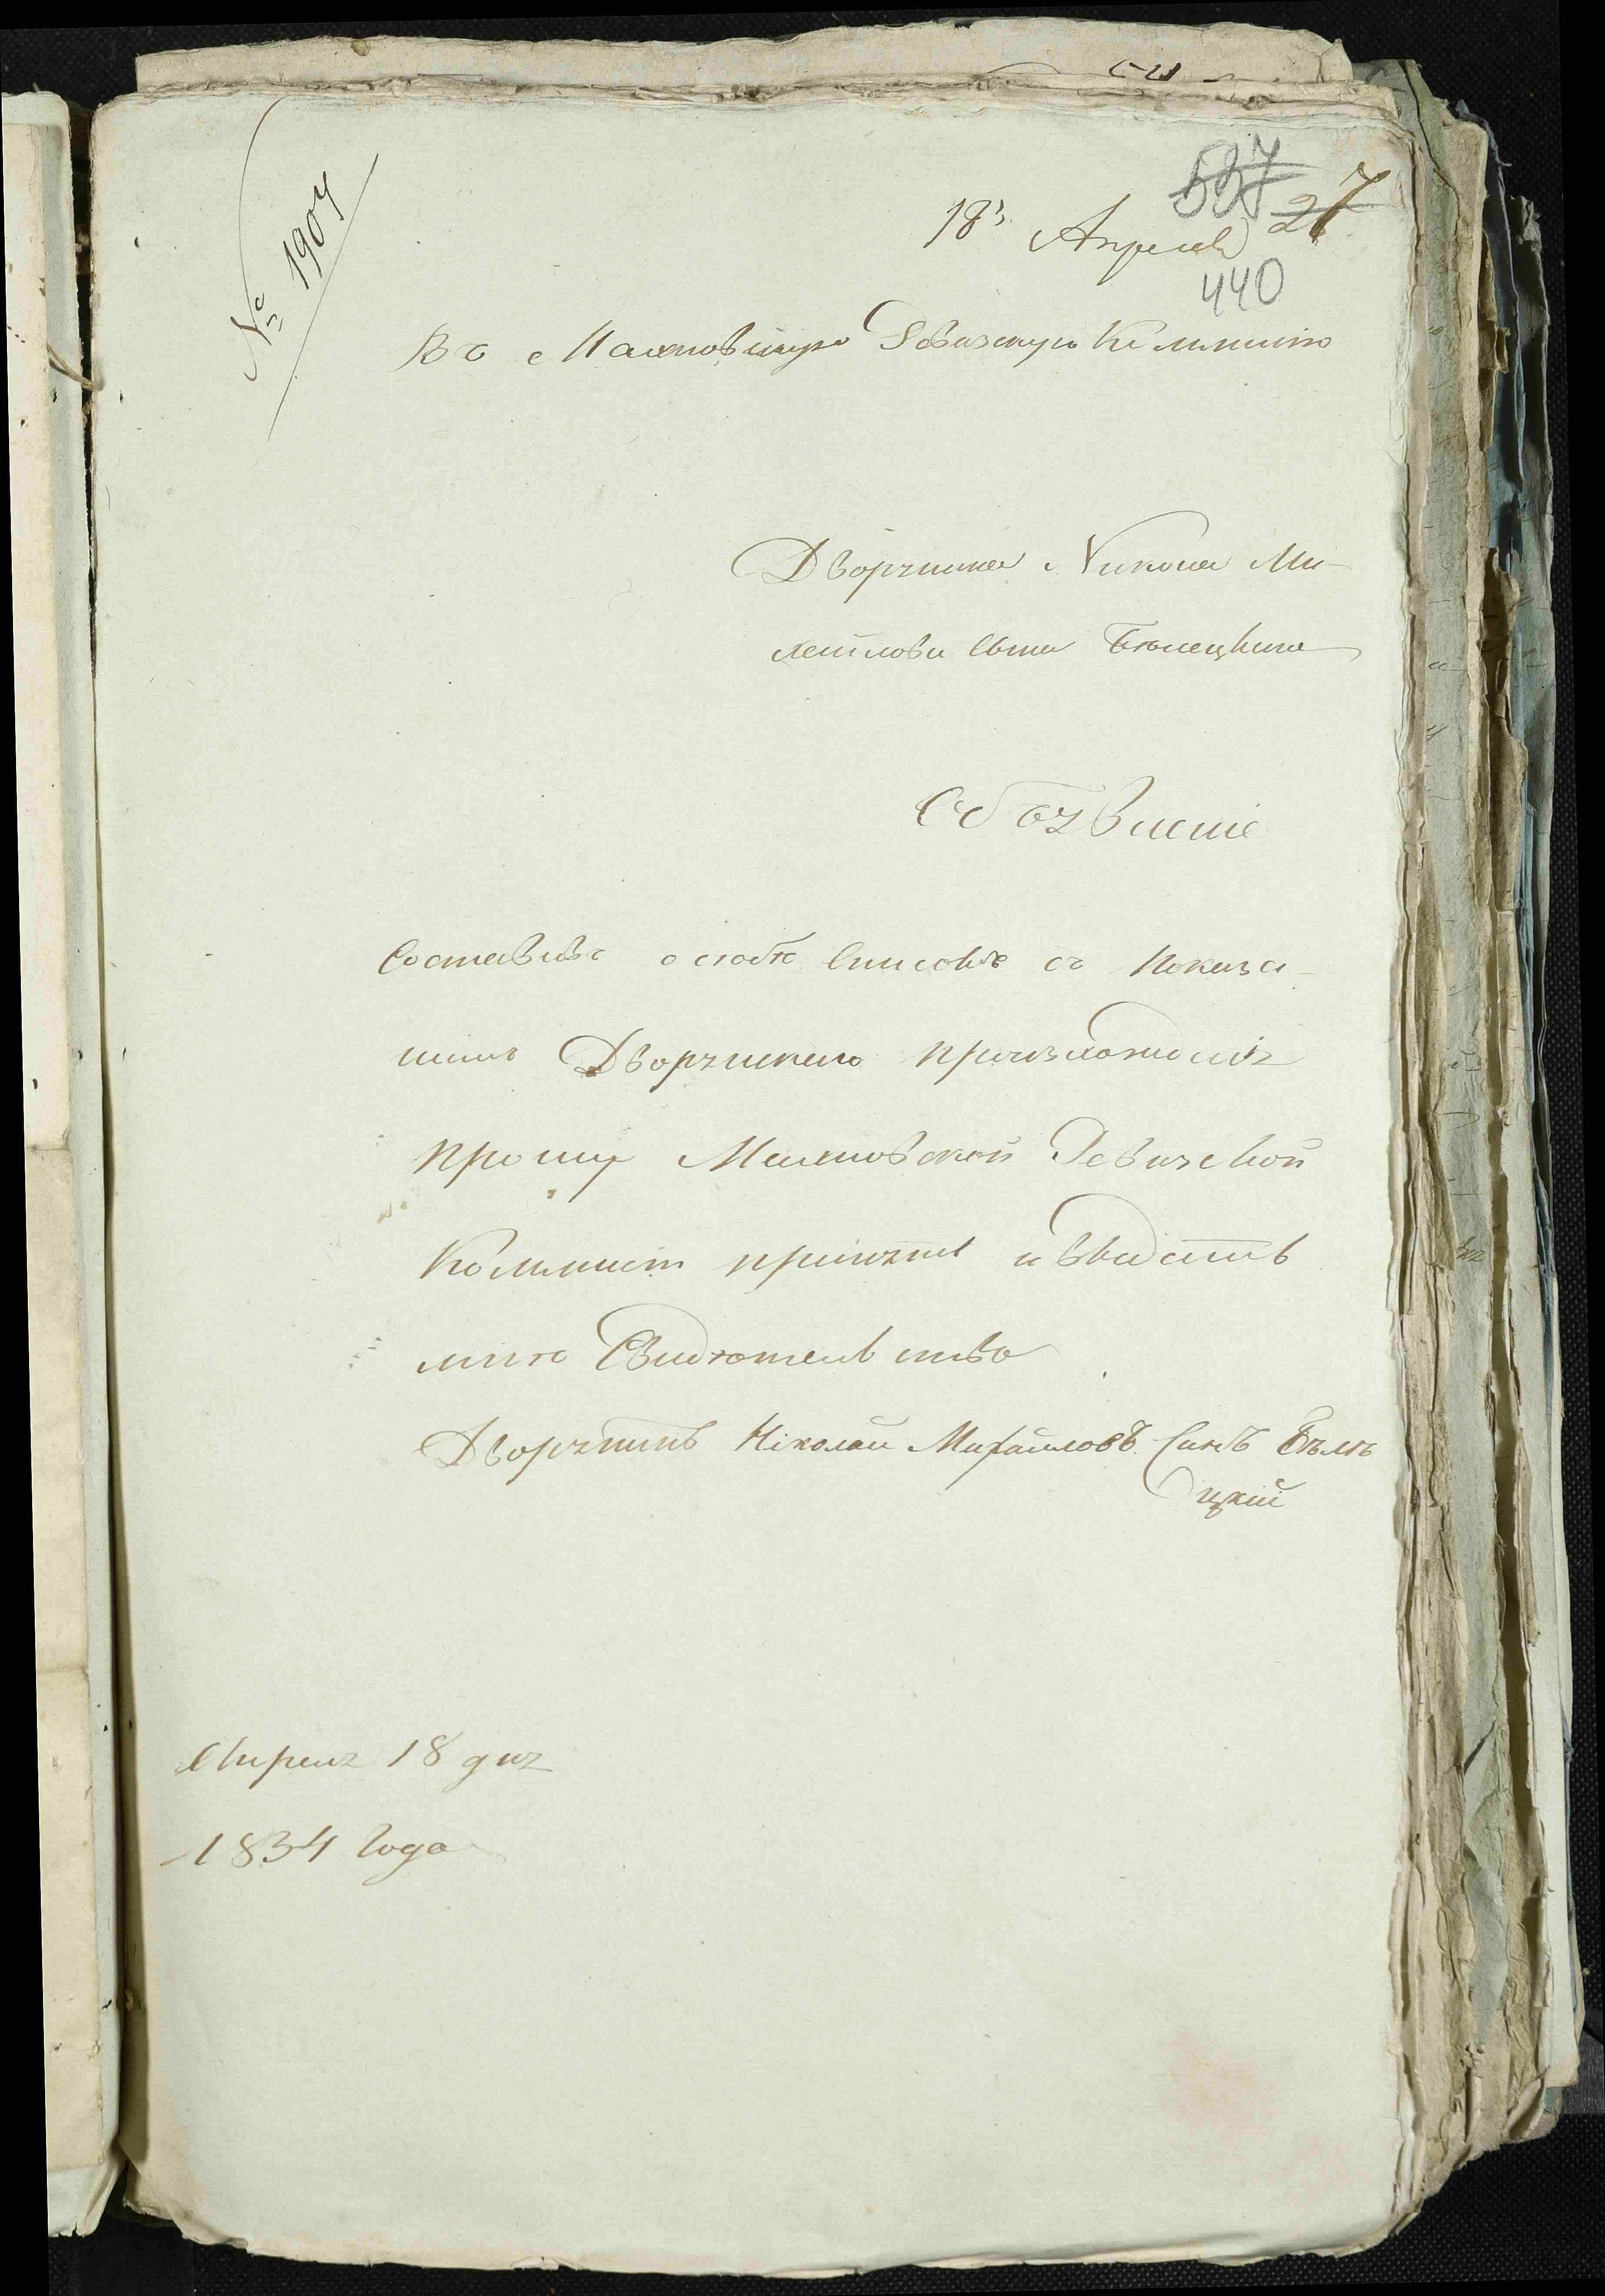 № 1904
537
18 Апрелѧ 27
440
Въ Махновскую Ревизскую Коммисію
Дворянина Николая Ми-
хайлова сына Бѣлецкаго
Объявленіе
Составивъ о себѣ списокъ съ показа-
ніемъ Дворянскаго произхожденія
прошу Махновской Ревизской
Коммисіи принять и выдать
мнѣ Свидѣтельство
Дворянинъ Ніколай Михайловъ Синъ Бѣлѣ
цкій
Апреля 18 дня
1834 Года